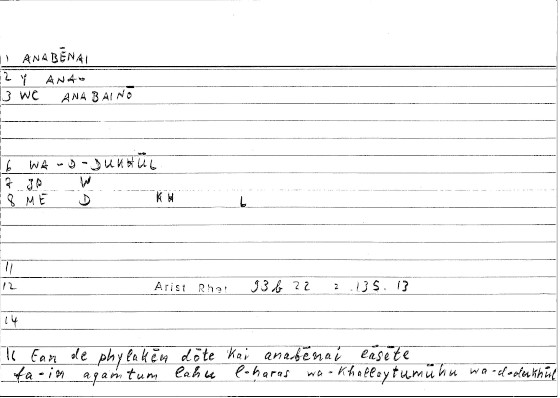 1 ANABĒNAI
2 Y ANAB
3 WC ANABAINŌ
6 WA-D-DUKHŪL
7 JP W
8 ME D KH L
11
12 Arist Rhet 93b 22 = 135.13
14
16 Ean de phylakēn dōte kai anabēnai eāsēte
fa-in aqamtum lahu l-haras wa-khallaytumūhu wa-d-dukhūl